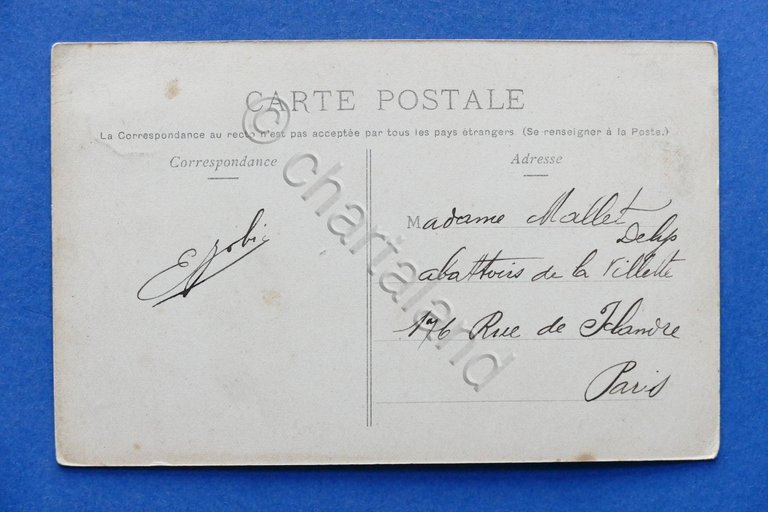 CARTE POSTALE
La Correspondance au recto n'est pas acceptée par tous les pays étrangers (Se renseigner à la Poste.)
Correspondance
Adresse
Madame Mallet
abattoirs de la Villette
176 Rue de Flandre
Paris
© chartaland